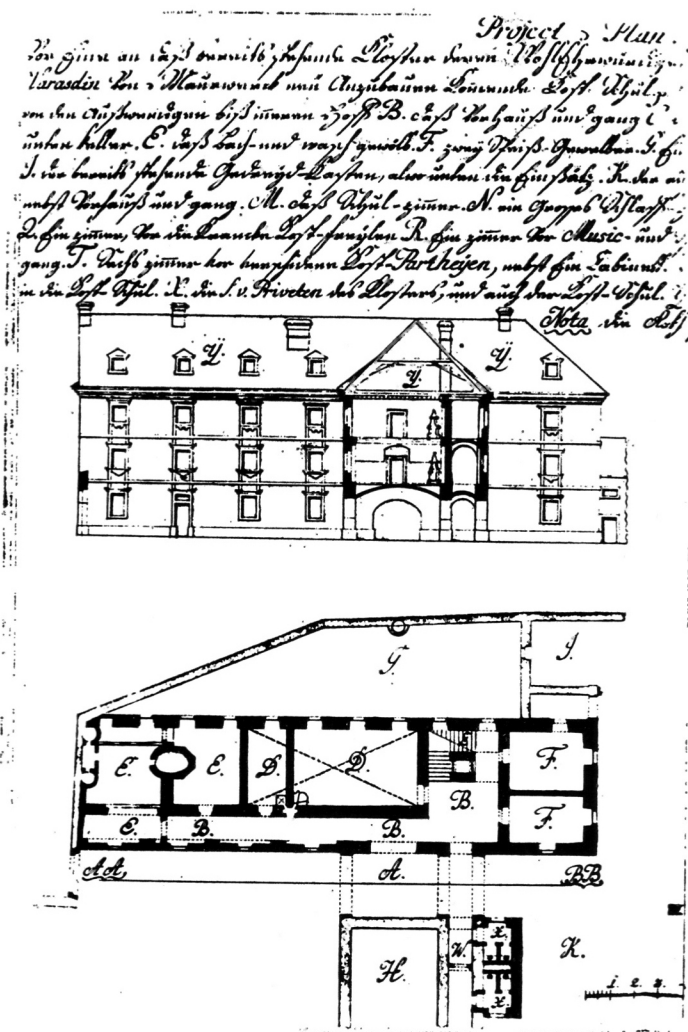 Project Plan.
Vor Eine an daß bereits stehende Closter deren WohlEhrwürdige
Varasdin Von Maurwerck neu Anzubauen Komende Kost Schul,
von den Auswendigen biß inneren Hoff B. daß Vorhauß und gang C
unten Keller. E. daß bach- und wasch gewölb. F. zwey Speiß-Gewölber. G. Ein
I. der bereits stehende Kasten, alwo unten die K. der
nebst Vorhauß und gang. M. daß Schul-zimer. N. ein Grosses Schlaff
Q. Ein zimer, Vor die Krancke Kost-freylen R. Ein zimer Vor Music- und
gang. T. Sechs zimer vor verschidene Kost-Partheyen, nebst Ein Cabinet.
in die Kost-Schul. X. die S. v. Priveten des Closters, und auch der Kost-Schul.
Nota die
Ÿ. Y. Ÿ.
G. I.
E. E. D. D. B. F.
E. B. B. F.
AA, A. BB
H. W. X. X. K.
1. 2. 3.